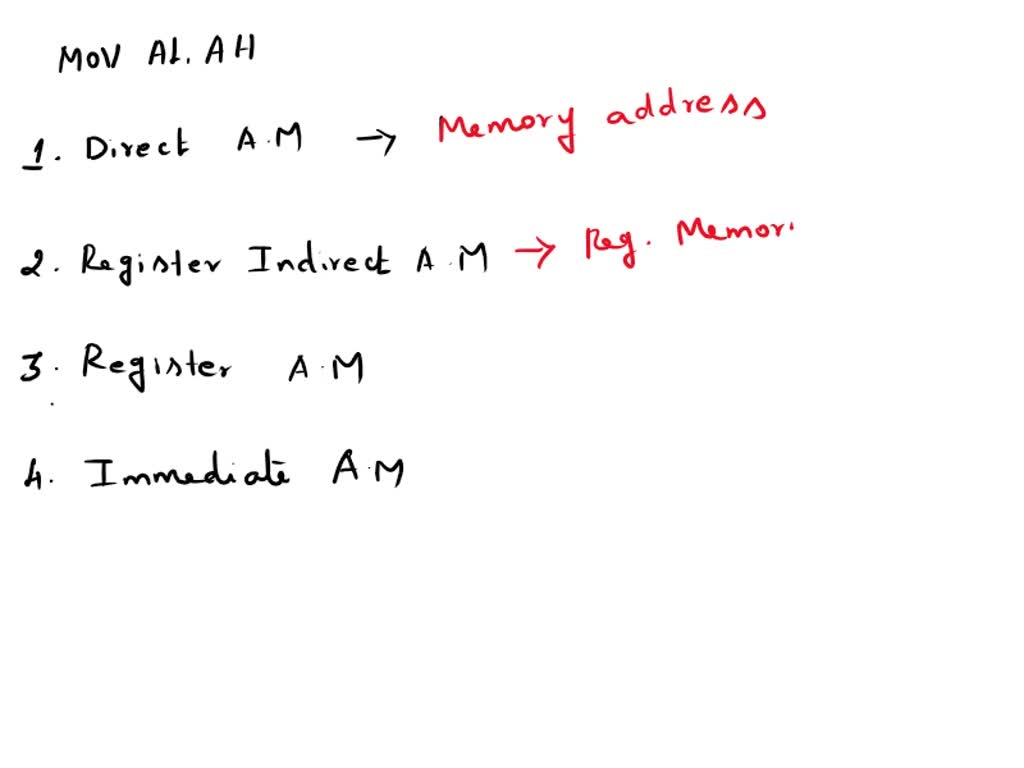 MOV AL. AH
1. Direct A.M → Memory address
2. Register Indirect A.M → Reg. Memor
3. Register A.M
4. Immediate A.M